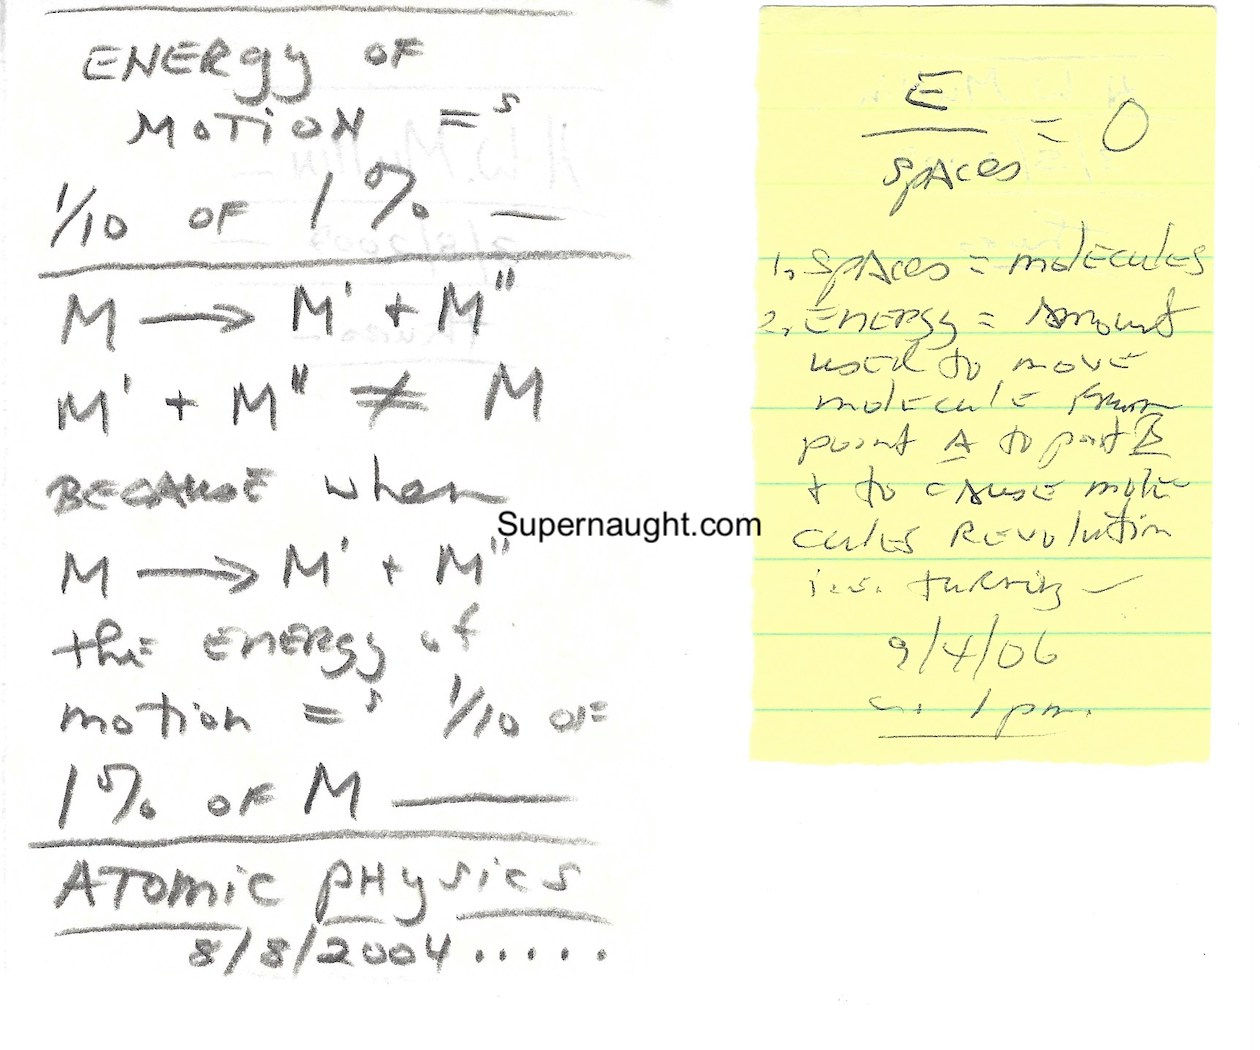 ENERgy OF
MOTiON =s
1/10 OF 1% —
M → M' + M"
M' + M" ≠ M
BECAUSE when
M → M' + M"
the ENERgy of
motion =s 1/10 OF
1% OF M —
ATOMiC pHysics
8/8/2004 .....
Supernaught.com
E
— = 0
spAces
1. spAces = molecules
2. ENERgy = Amount
used to move
molecule from
point A to point B
+ to cAuse mole
cules REvolution
i.e. turning —
9/4/06
1 pm.